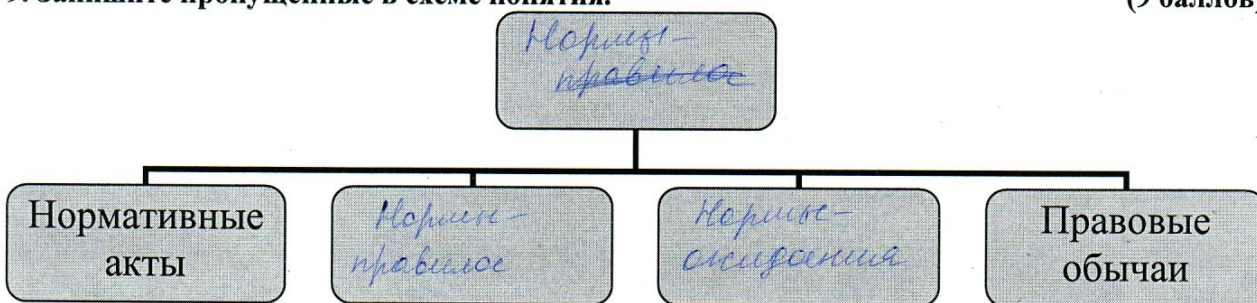 9. Запишите пропущенные в схеме понятия. (9 баллов)
Нормы-
правила
Нормативные
акты
Нормы-
правила
Нормы-
ожидания
Правовые
обычаи